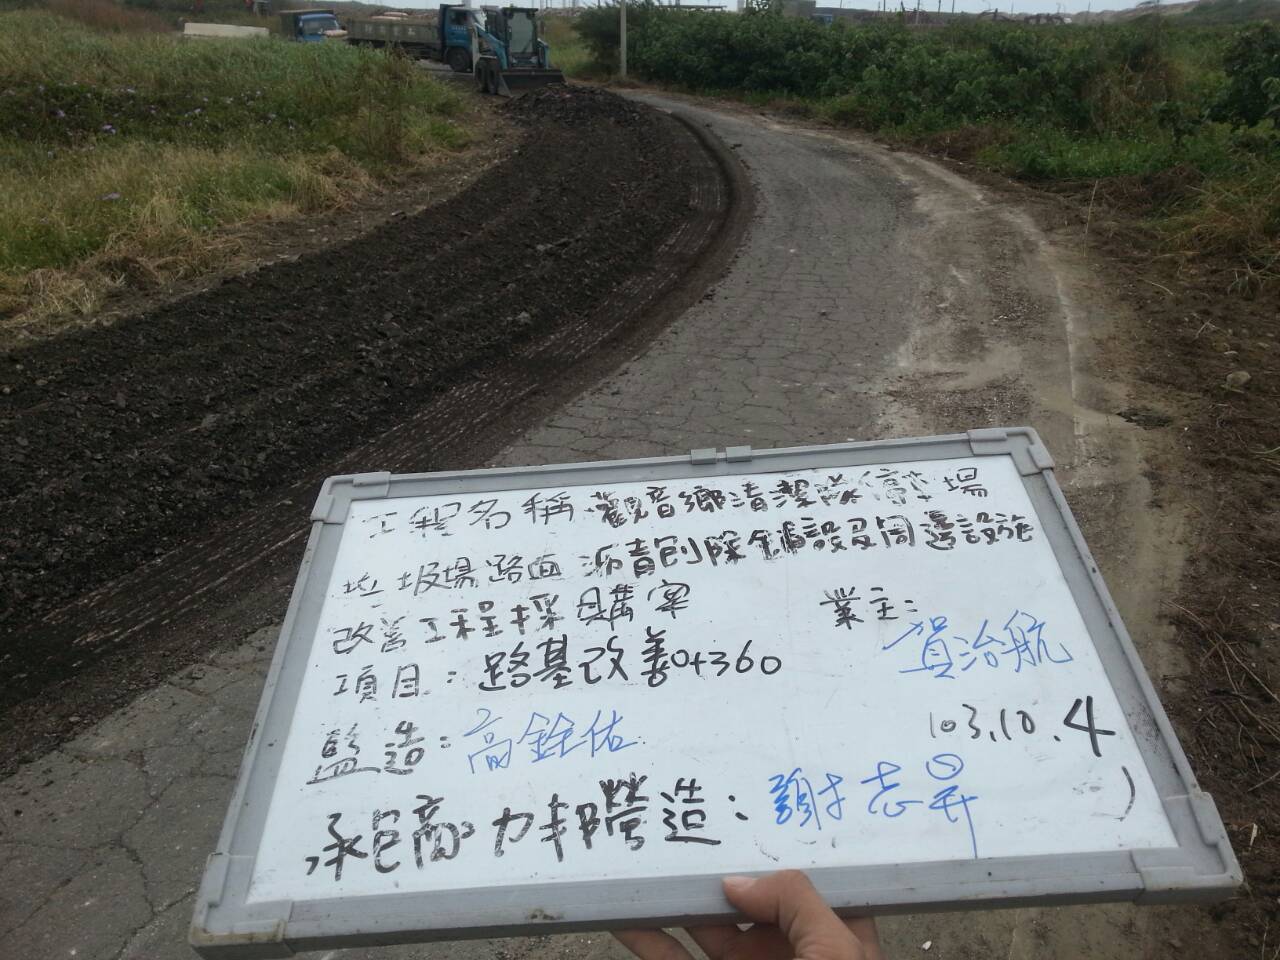 工程名稱:觀音鄉清潔隊停車場
垃圾場路面瀝青刨除舖設及周邊設施
改善工程採購案
業主:
賀治航
項目:路基改善0+360
監造:高銓佑
103.10.4
承包商:力邦營造:謝志昇